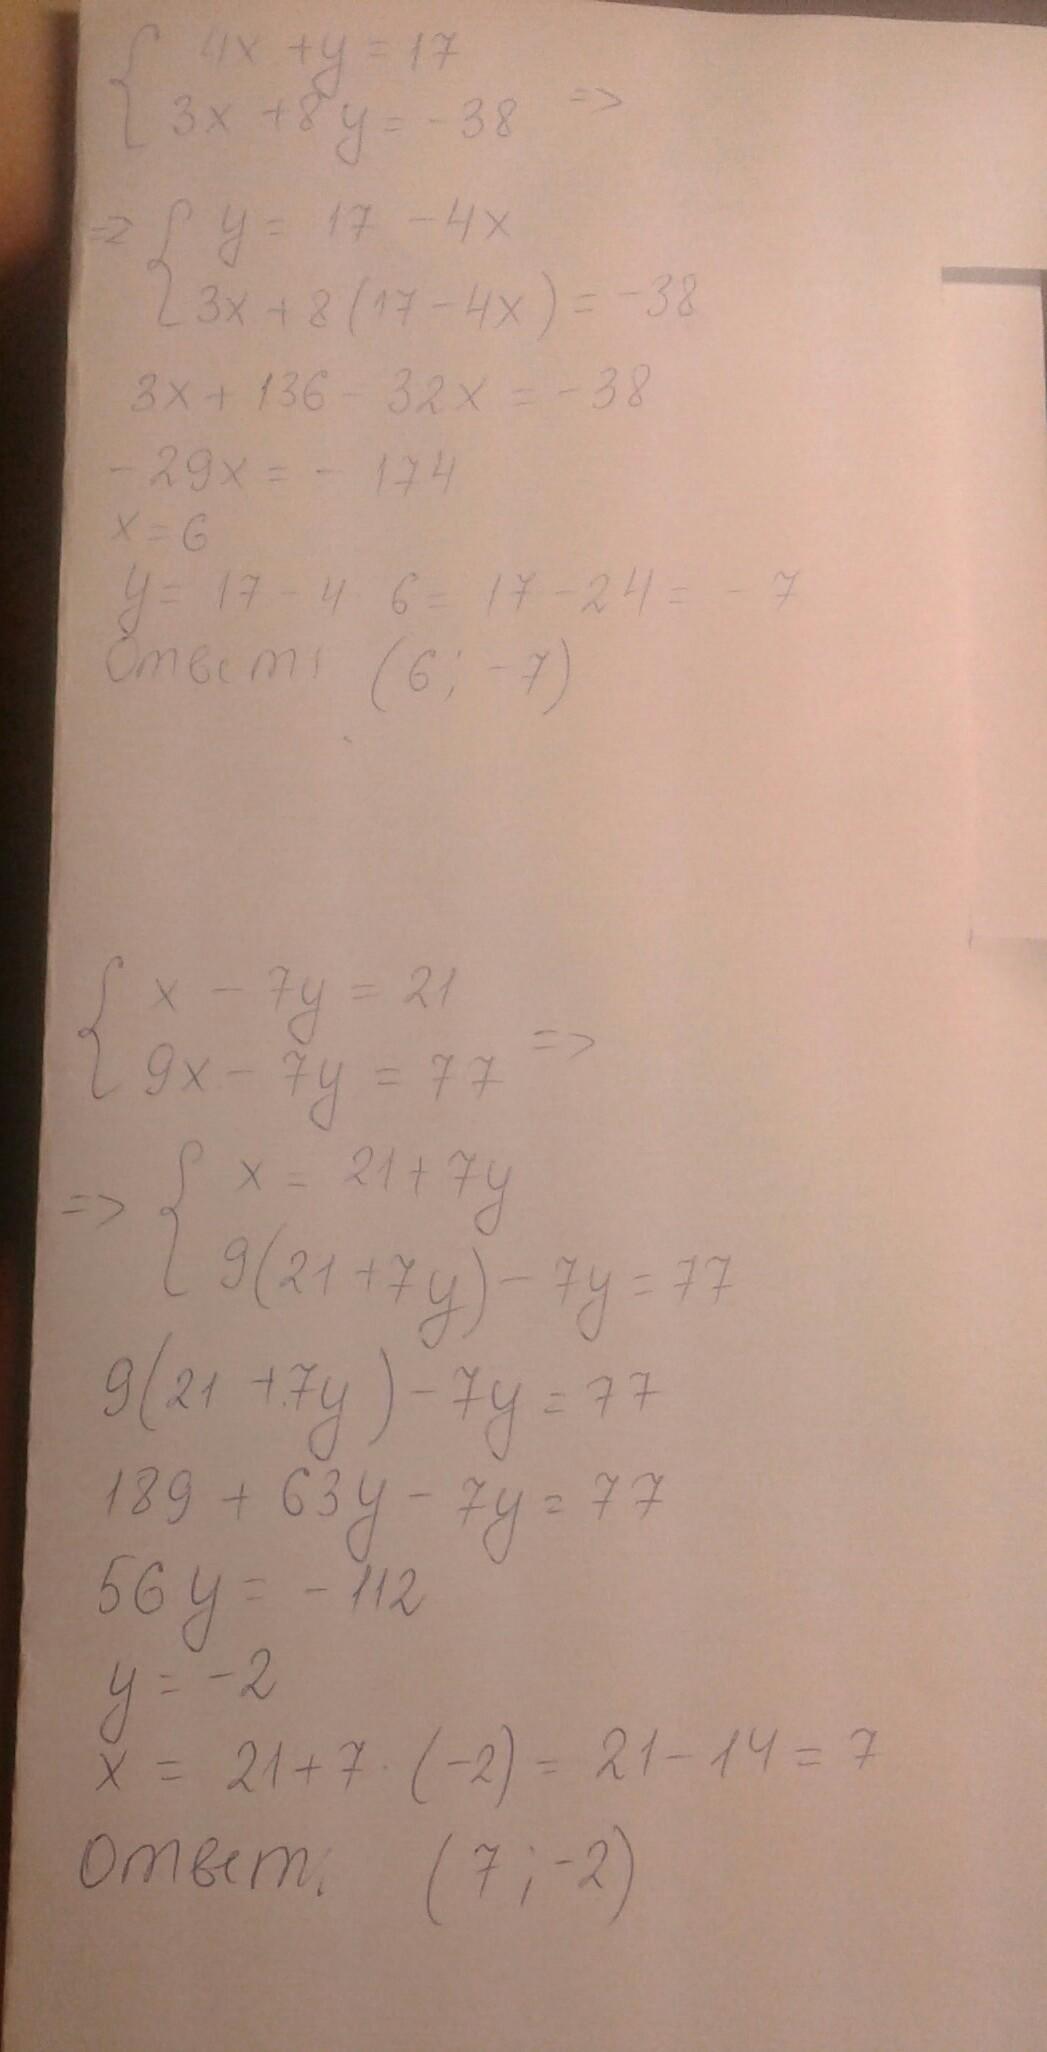 { 4x + y = 17
3x + 8y = -38 =>
=> { y = 17 - 4x
3x + 8(17 - 4x) = -38
3x + 136 - 32x = -38
-29x = - 174
x = 6
y = 17 - 4 · 6 = 17 - 24 = - 7
Ответ: (6; -7)
{ x - 7y = 21
9x - 7y = 77 =>
=> { x = 21 + 7y
9(21 + 7y) - 7y = 77
9(21 + 7y) - 7y = 77
189 + 63y - 7y = 77
56y = -112
y = -2
x = 21 + 7 · (-2) = 21 - 14 = 7
Ответ: (7; -2)